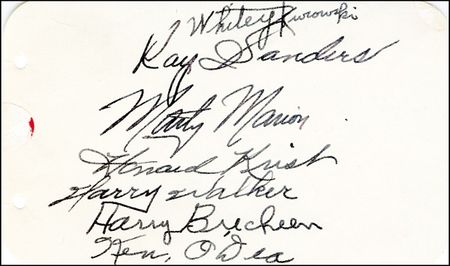 Whitey Kurowski
Ray Sanders
Marty Marion
Howard Krist
Harry Walker
Harry Brecheen
Ken. O'Dea